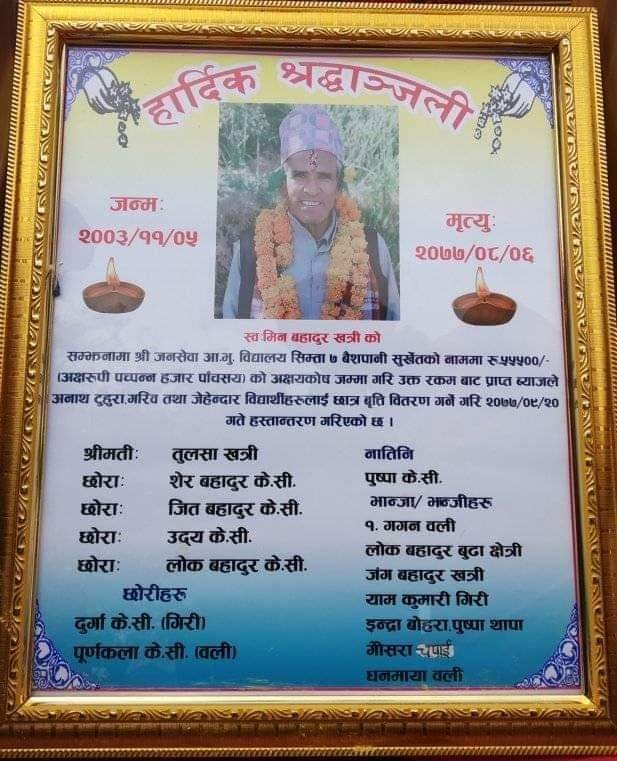 हार्दिक श्रद्धाञ्जली
जन्म:
२००३/११/०५
मृत्यु:
२०७७/०८/०६
स्व:मिन बहादुर खत्री को
सम्झनामा श्री जनसेवा आ.मु. विद्यालय सिम्ता ७ बैशपानी सुर्खेतको नाममा रु.५५५००/-
(अक्षरुपी पच्पन्न हजार पाँचसय) को अक्षयकोष जम्मा गरि उक्त रकम बाट प्राप्त ब्याजले
अनाथ टुहुरा,गरिव तथा जेहेन्दार विद्यार्थीहरुलाई छात्र बृति वितरण गर्ने गरि २०७७/०९/२०
गते हस्तान्तरण गरिएको छ ।
श्रीमती: तुलसा खत्री
छोरा: शेर बहादुर के.सी.
छोरा: जित बहादुर के.सी.
छोरा: उदय के.सी.
छोरा: लोक बहादुर के.सी.
छोरीहरु
दुर्गा के.सी. (गिरी)
पूर्णकला के.सी. (वली)
नातिनि
पुष्पा के.सी.
भान्जा/ भन्जीहरु
१. गगन वली
लोक बहादुर बुढा क्षेत्री
जंग बहादुर खत्री
याम कुमारी गिरी
इन्द्रा बोहरा,पुष्पा थापा
गौसरा
धनमाया वली